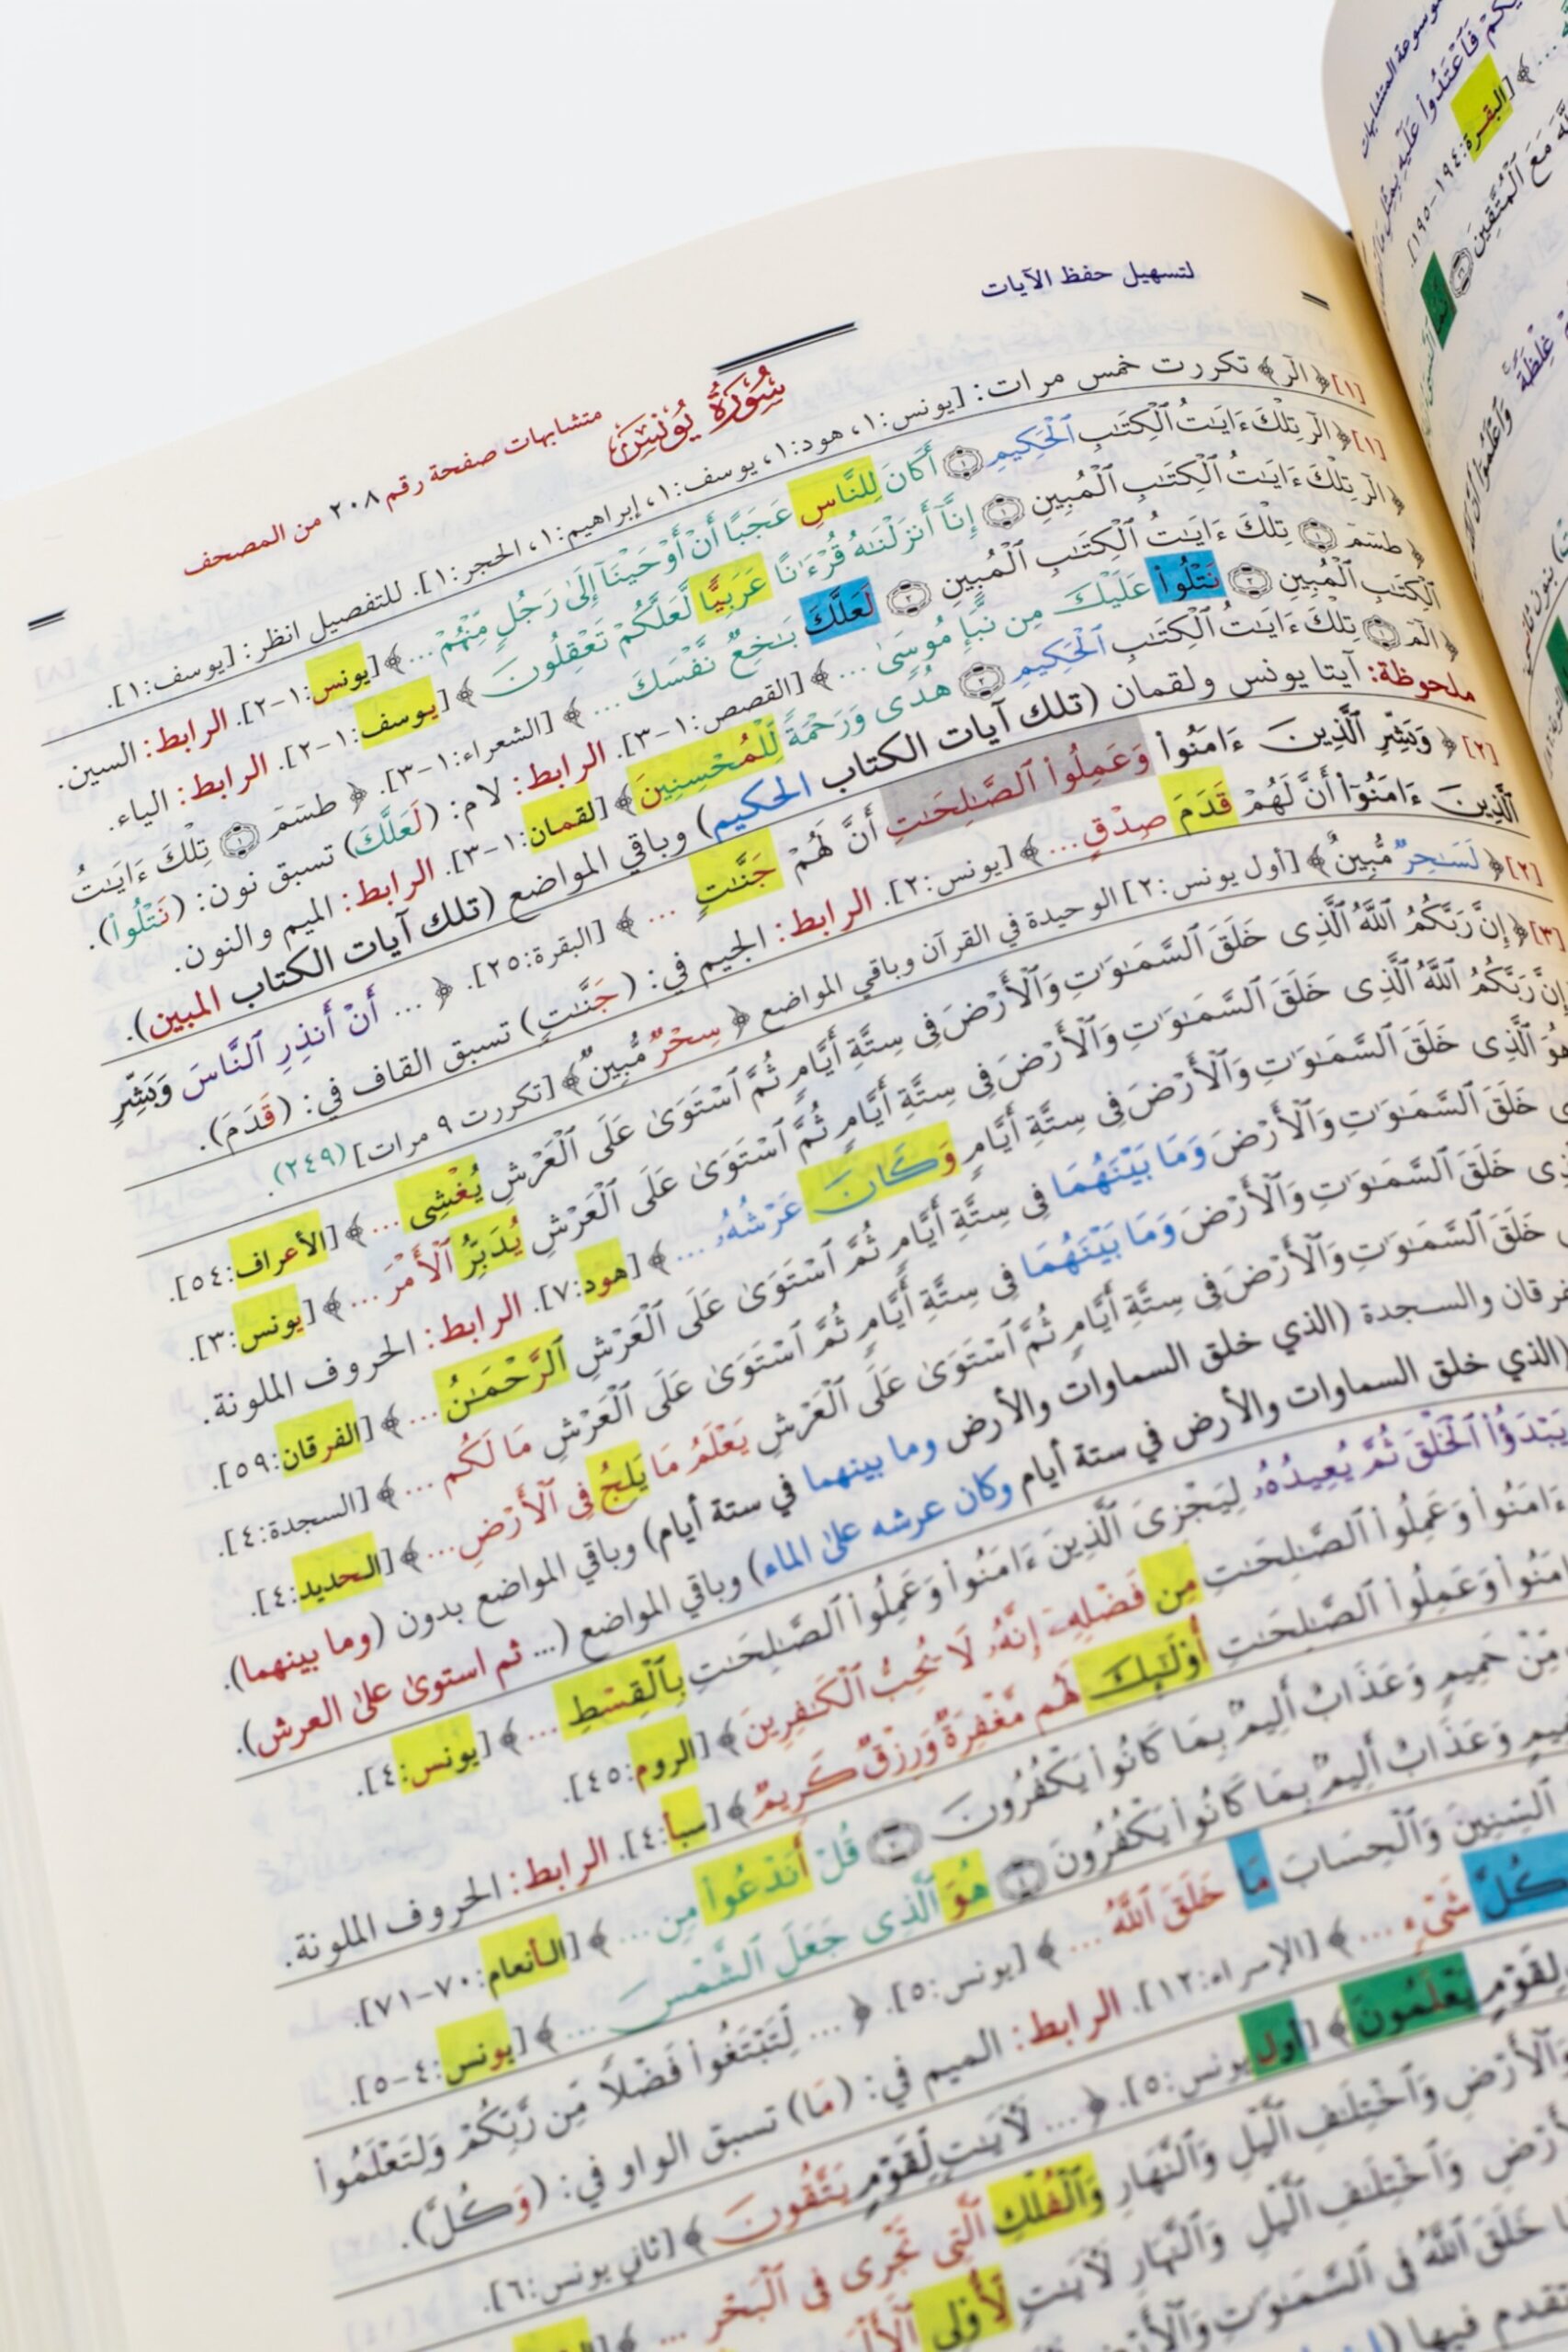 لتسهيل حفظ الآيات
سُورَةُ يُونُسَ
متشابهات صفحة رقم ٢٠٨ من المصحف
[١] ﴿الٓر﴾ تكررت خمس مرات: [يونس:١، هود:١، يوسف:١، إبراهيم:١، الحجر:١]. للتفصيل انظر: [يوسف:١].
[١] ﴿الٓر تِلْكَ ءَايَٰتُ ٱلْكِتَٰبِ ٱلْحَكِيمِ ۝١ أَكَانَ لِلنَّاسِ عَجَبًا أَنْ أَوْحَيْنَآ إِلَىٰ رَجُلٍ مِّنْهُمْ...﴾ [يونس:١-٢]. الرابط: السين.
﴿الٓر تِلْكَ ءَايَٰتُ ٱلْكِتَٰبِ ٱلْمُبِينِ ۝١ إِنَّآ أَنزَلْنَٰهُ قُرْءَٰنًا عَرَبِيًّا لَّعَلَّكُمْ تَعْقِلُونَ﴾ [يوسف:١-٢]. الرابط: الياء.
﴿طسٓمٓ ۝١ تِلْكَ ءَايَٰتُ ٱلْكِتَٰبِ ٱلْمُبِينِ ۝٢ لَعَلَّكَ بَٰخِعٌ نَّفْسَكَ...﴾ [الشعراء:١-٣]. ﴿طسٓمٓ ۝١ تِلْكَ ءَايَٰتُ
ٱلْكِتَٰبِ ٱلْمُبِينِ ۝٢ نَتْلُوا۟ عَلَيْكَ مِن نَّبَإِ مُوسَىٰ...﴾ [القصص:١-٣]. الرابط: لام: (لَعَلَّكَ) تسبق نون: (نَتْلُوا۟).
﴿الٓمٓ ۝١ تِلْكَ ءَايَٰتُ ٱلْكِتَٰبِ ٱلْحَكِيمِ ۝٢ هُدًى وَرَحْمَةً لِّلْمُحْسِنِينَ﴾ [لقمان:١-٣]. الرابط: الميم والنون.
ملحوظة: آيتا يونس ولقمان (تلك آيات الكتاب الحكيم) وباقي المواضع (تلك آيات الكتاب المبين).
[٢] ﴿وَبَشِّرِ ٱلَّذِينَ ءَامَنُوا۟ وَعَمِلُوا۟ ٱلصَّٰلِحَٰتِ أَنَّ لَهُمْ جَنَّٰتٍ ...﴾ [البقرة:٢٥]. ﴿... أَنْ أَنذِرِ ٱلنَّاسَ وَبَشِّرِ
ٱلَّذِينَ ءَامَنُوٓا۟ أَنَّ لَهُمْ قَدَمَ صِدْقٍ...﴾ [يونس:٢]. الرابط: الجيم في: (جَنَّٰتٍ) تسبق القاف في: (قَدَمَ).
[٢] ﴿لَسَٰحِرٌ مُّبِينٌ﴾ [أول يونس:٢] الوحيدة في القرآن وباقي المواضع ﴿سِحْرٌ مُّبِينٌ﴾ [تكررت ٩ مرات] (٢٤٩).
[٣] ﴿إِنَّ رَبَّكُمُ ٱللَّهُ ٱلَّذِى خَلَقَ ٱلسَّمَٰوَٰتِ وَٱلْأَرْضَ فِى سِتَّةِ أَيَّامٍ ثُمَّ ٱسْتَوَىٰ عَلَى ٱلْعَرْشِ يُغْشِى...﴾ [الأعراف:٥٤].
إِنَّ رَبَّكُمُ ٱللَّهُ ٱلَّذِى خَلَقَ ٱلسَّمَٰوَٰتِ وَٱلْأَرْضَ فِى سِتَّةِ أَيَّامٍ ثُمَّ ٱسْتَوَىٰ عَلَى ٱلْعَرْشِ يُدَبِّرُ ٱلْأَمْرَ...﴾ [يونس:٣].
هُوَ ٱلَّذِى خَلَقَ ٱلسَّمَٰوَٰتِ وَٱلْأَرْضَ فِى سِتَّةِ أَيَّامٍ وَكَانَ عَرْشُهُۥ...﴾ [هود:٧]. الرابط: الحروف الملونة.
خَلَقَ ٱلسَّمَٰوَٰتِ وَٱلْأَرْضَ وَمَا بَيْنَهُمَا فِى سِتَّةِ أَيَّامٍ ثُمَّ ٱسْتَوَىٰ عَلَى ٱلْعَرْشِ ٱلرَّحْمَٰنُ...﴾ [الفرقان:٥٩].
خَلَقَ ٱلسَّمَٰوَٰتِ وَٱلْأَرْضَ وَمَا بَيْنَهُمَا فِى سِتَّةِ أَيَّامٍ ثُمَّ ٱسْتَوَىٰ عَلَى ٱلْعَرْشِ مَا لَكُم...﴾ [السجدة:٤].
خَلَقَ ٱلسَّمَٰوَٰتِ وَٱلْأَرْضَ فِى سِتَّةِ أَيَّامٍ ثُمَّ ٱسْتَوَىٰ عَلَى ٱلْعَرْشِ يَعْلَمُ مَا يَلِجُ فِى ٱلْأَرْضِ...﴾ [الحديد:٤].
والسجدة (الذي خلق السماوات والأرض وما بينهما في ستة أيام) وباقي المواضع بدون (وما بينهما).
(الذي خلق السماوات والأرض في ستة أيام وكان عرشه على الماء) وباقي المواضع (... ثم استوى على العرش).
يَبْدَؤُا۟ ٱلْخَلْقَ ثُمَّ يُعِيدُهُۥ لِيَجْزِىَ ٱلَّذِينَ ءَامَنُوا۟ وَعَمِلُوا۟ ٱلصَّٰلِحَٰتِ بِٱلْقِسْطِ ...﴾ [يونس:٤].
ءَامَنُوا۟ وَعَمِلُوا۟ ٱلصَّٰلِحَٰتِ مِن فَضْلِهِۦٓ إِنَّهُۥ لَا يُحِبُّ ٱلْكَٰفِرِينَ﴾ [الروم:٤٥].
وَعَمِلُوا۟ ٱلصَّٰلِحَٰتِ أُو۟لَٰٓئِكَ لَهُم مَّغْفِرَةٌ وَرِزْقٌ كَرِيمٌ﴾ [سبأ:٤]. الرابط: الحروف الملونة.
مِّنْ حَمِيمٍ وَعَذَابٌ أَلِيمٌۢ بِمَا كَانُوا۟ يَكْفُرُونَ قُلْ أَنَدْعُوا۟ مِن...﴾ [الأنعام:٧٠-٧١].
وَعَذَابٌ أَلِيمٌۢ بِمَا كَانُوا۟ يَكْفُرُونَ هُوَ ٱلَّذِى جَعَلَ ٱلشَّمْسَ...﴾ [يونس:٤-٥].
ٱلسِّنِينَ وَٱلْحِسَابَ مَا خَلَقَ ٱللَّهُ...﴾ [يونس:٥]. ﴿... لِّتَبْتَغُوا۟ فَضْلًا مِّن رَّبِّكُمْ وَلِتَعْلَمُوا۟
كُلَّ شَىْءٍ...﴾ [الإسراء:١٢]. الرابط: الميم في: (مَا) تسبق الواو في: (وَكُلَّ).
لِقَوْمٍ يَعْلَمُونَ﴾ [أول يونس:٥]. ﴿... لَءَايَٰتٍ لِّقَوْمٍ يَتَّقُونَ﴾ [ثاني يونس:٦].
وَٱلْأَرْضِ وَٱخْتِلَٰفِ ٱلَّيْلِ وَٱلنَّهَارِ وَٱلْفُلْكِ ٱلَّتِى تَجْرِى فِى ٱلْبَحْرِ ...
وَٱخْتِلَٰفِ ٱلَّيْلِ وَٱلنَّهَارِ لَءَايَٰتٍ لِّأُو۟لِى
خَلَقَ ٱللَّهُ فِى ٱلسَّمَٰوَٰتِ
تقدم فيها
[البقرة:١٩٤-١٩٥].